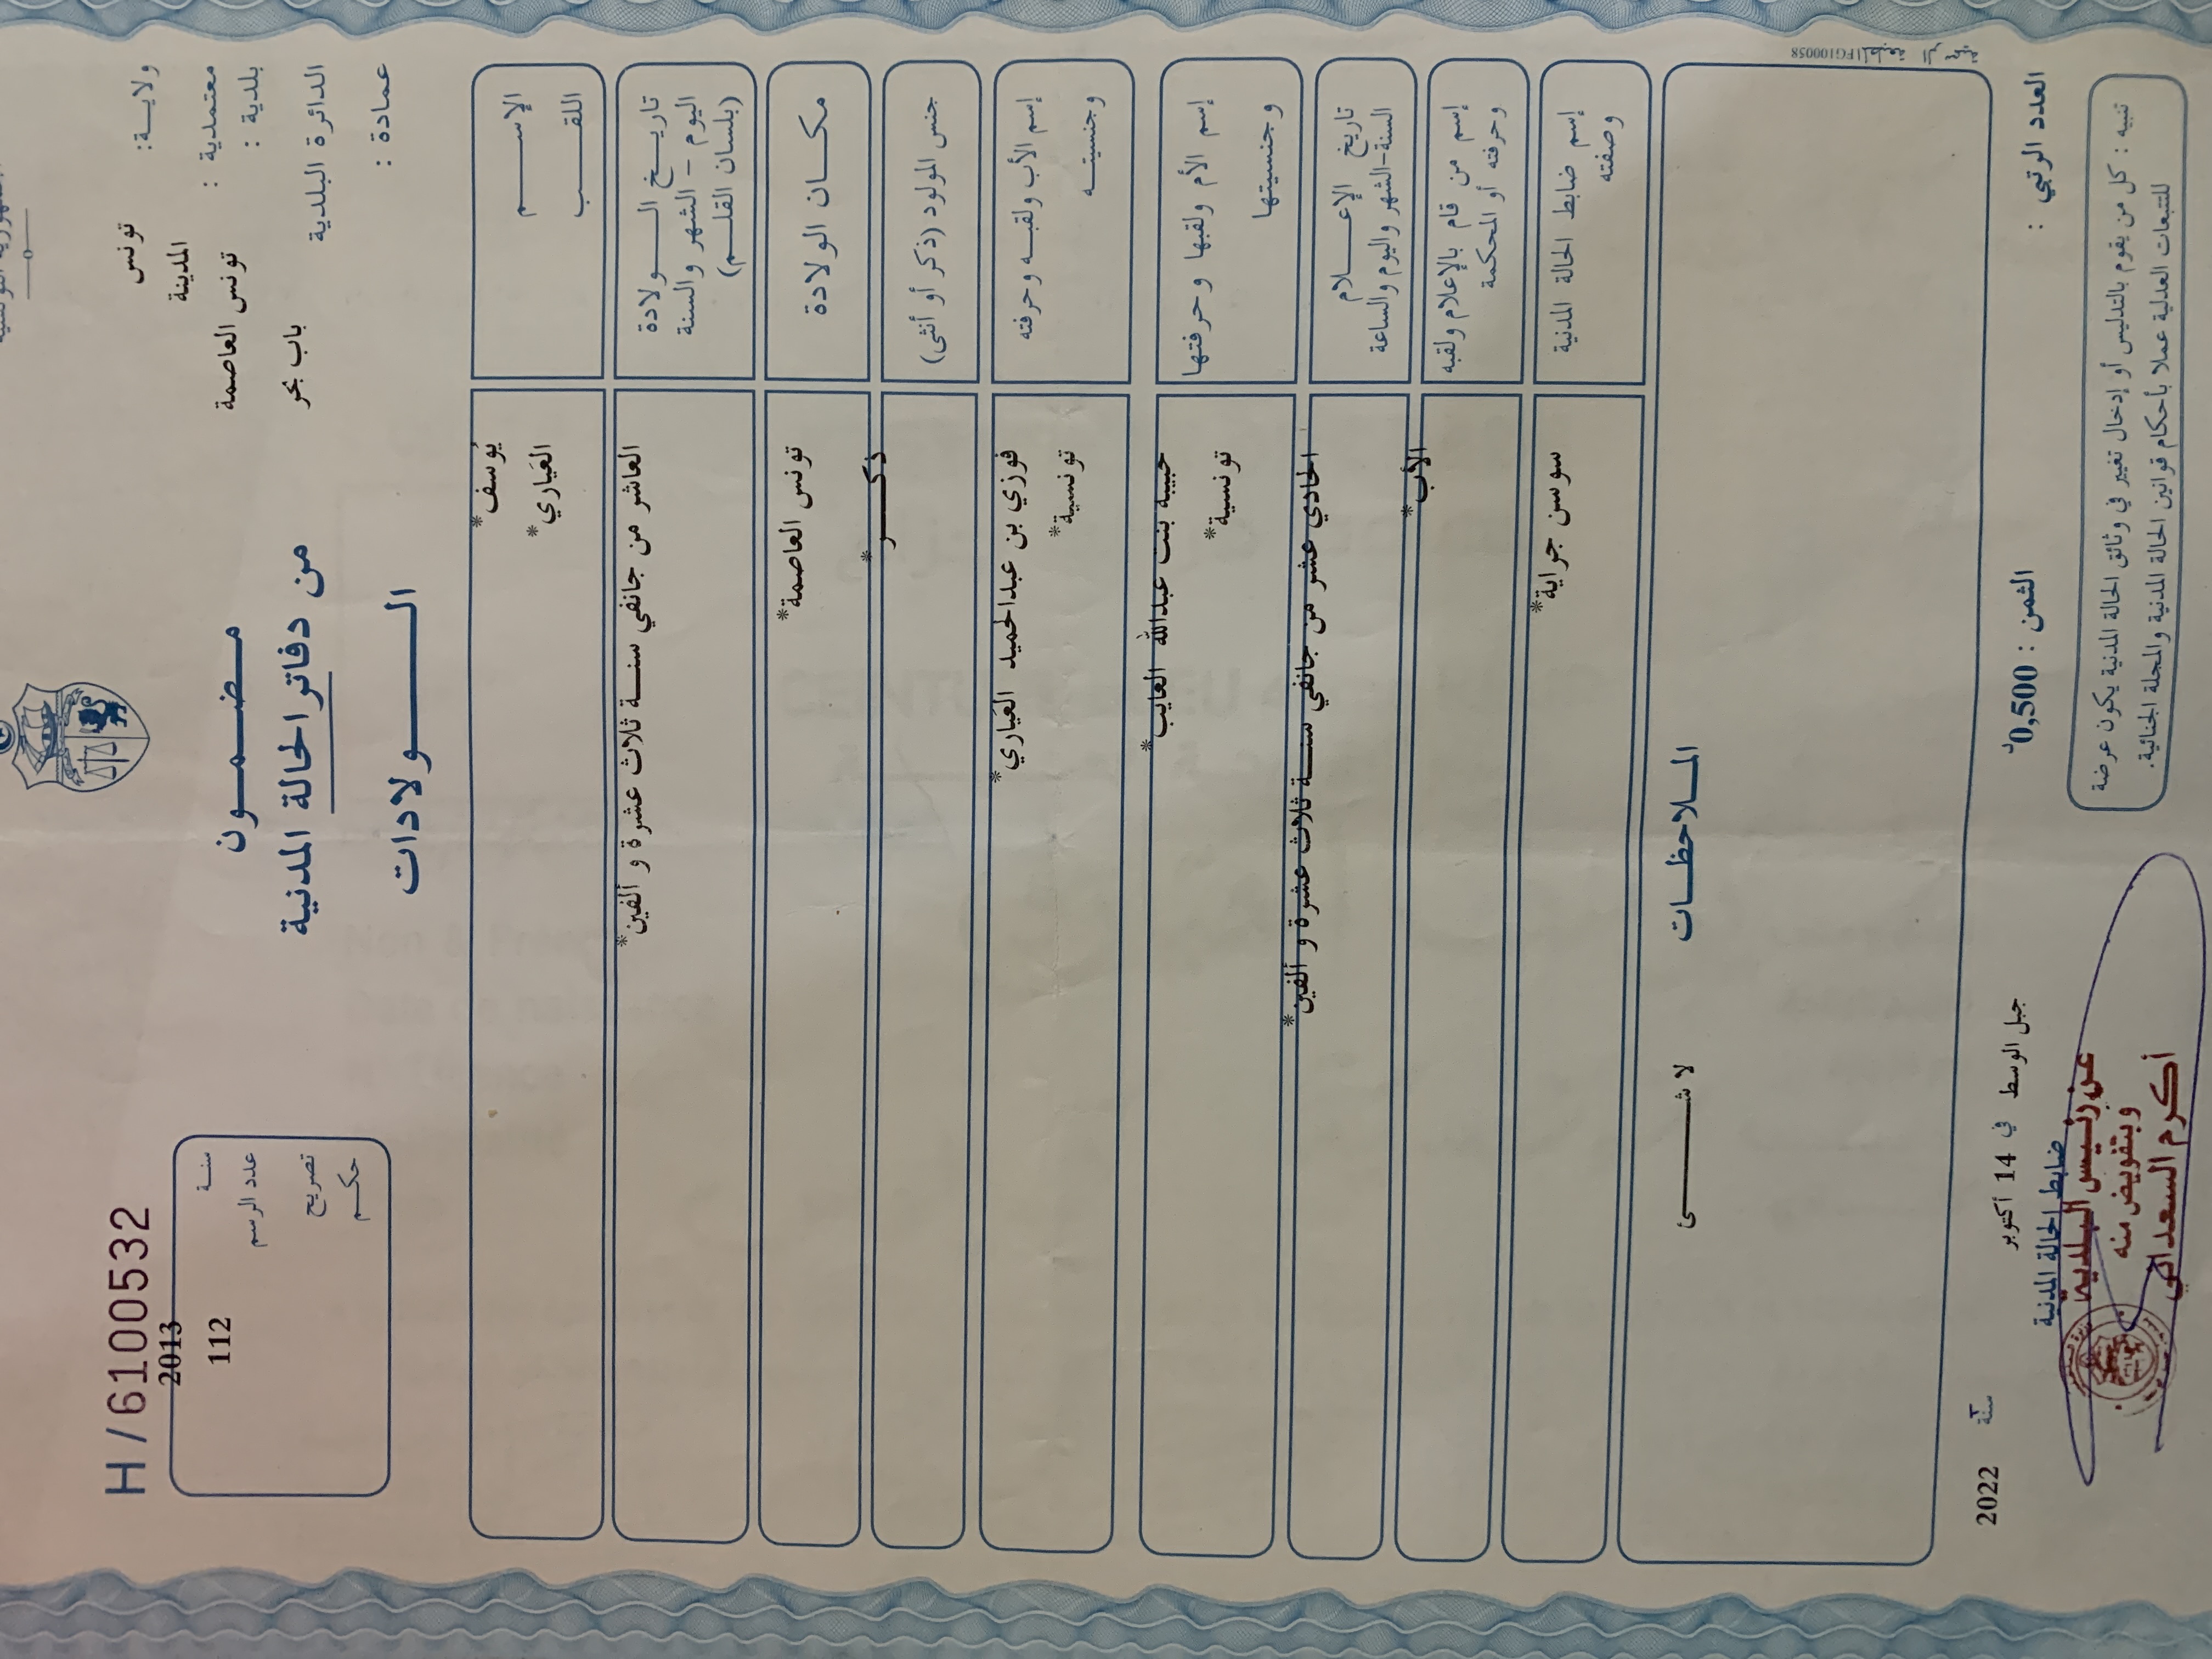 H / 6100532
مضمون
من دفاتر الحالة المدنية
الولادات
ولاية: تونس
معتمدية : المدينة
بلدية : تونس العاصمة
الدائرة البلدية باب بحر
عمادة :
سنة 2013
عدد الرسم 112
تصريح
حكم
الإسم يُوسف*
اللقب العياري*
تاريخ الولادة العاشر من جانفي سنة ثلاث عشرة و ألفين*
اليوم – الشهر والسنة
(بلسان القلم)
مكان الولادة تونس العاصمة*
جنس المولود (ذكر أو أنثى) ذكر*
إسم الأب ولقبه وحرفته فوزي بن عبدالحميد العياري*
وجنسيته تونسية*
إسم الأم ولقبها وحرفتها حبيبة بنت عبدالله العايب*
وجنسيتها تونسية*
تاريخ الإعلام الحادي عشر من جانفي سنة ثلاث عشرة و ألفين*
السنة-الشهر واليوم والساعة
إسم من قام بالإعلام ولقبه الأب*
وحرفته أو المحكمة
إسم ضابط الحالة المدنية سوسن جراية*
وصفته
الملاحظات
لا شئ
العدد الرتبي :
الثمن : 0,500د
جبل الوسط في 14 أكتوبر سنة 2022
ضابط الحالة المدنية
عن رئيس البلدية
وبتفويض منه
أكرم السعداني
تنبيه : كل من يقوم بالتدليس أو إدخال تغيير في وثائق الحالة المدنية يكون عرضة
للتتبعات العدلية عملا بأحكام قوانين الحالة المدنية والمجلة الجنائية.